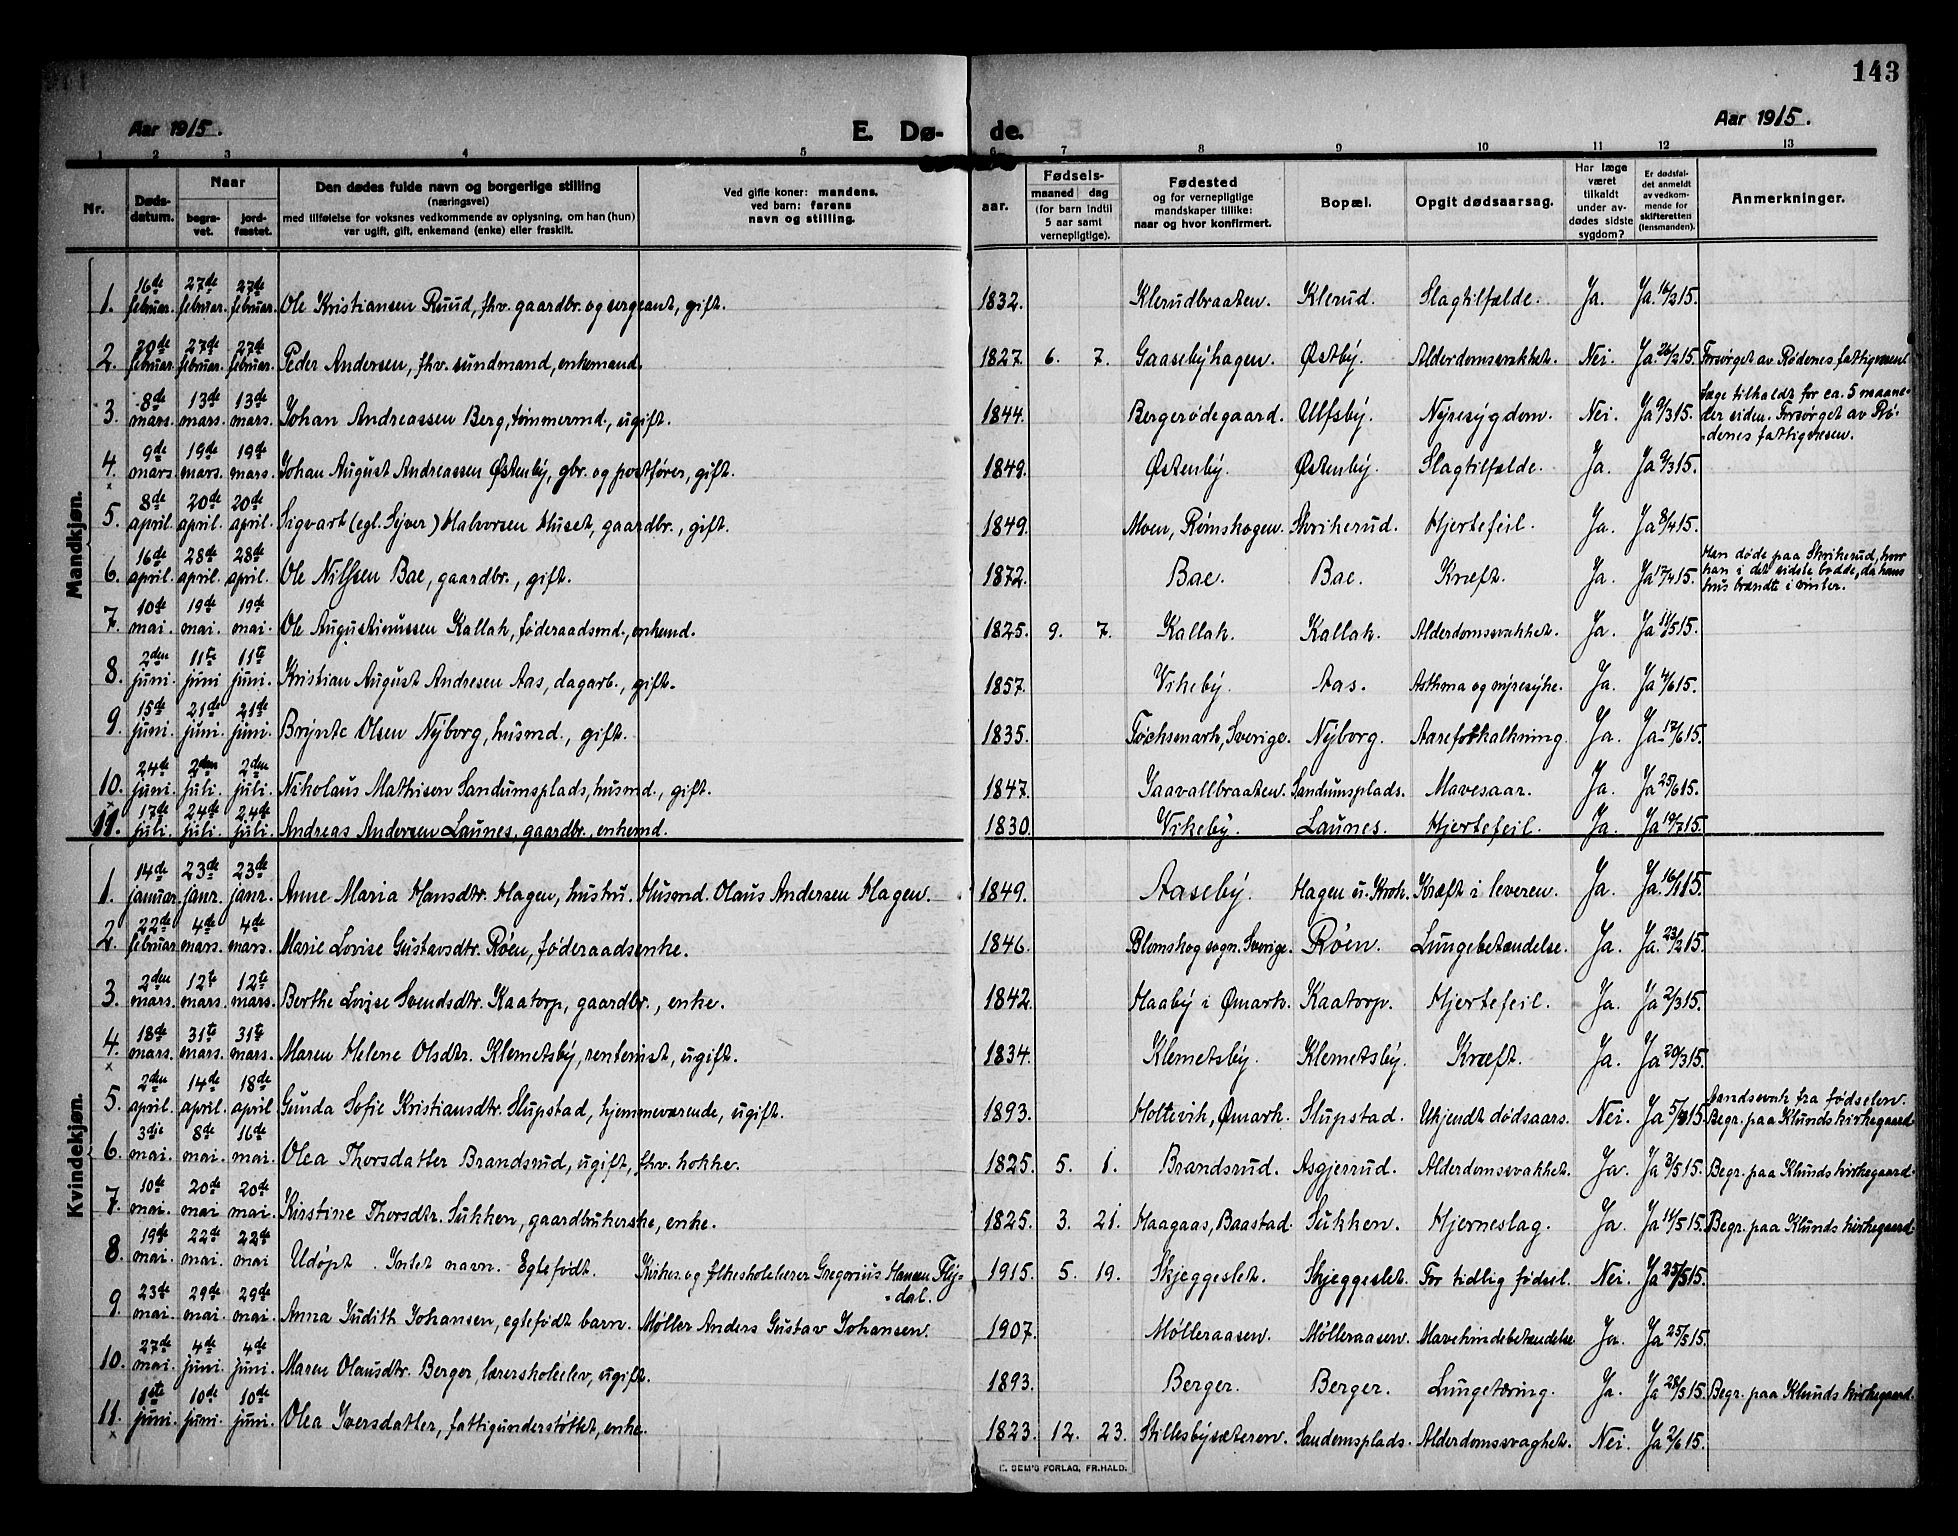 143
Aar 1915.
E. Dø- de.
Aar 1915.
1 2 3 4 5 6 7 8 9 10 11 12 13
Nr.
Døds-datum.
Naar
begra-vet.
jord-fæstet.
Den dødes fulde navn og borgerlige stilling
(næringsvei)
med tilføielse for voksnes vedkommende av oplysning, om han (hun)
var ugift, gift, enkemand (enke) eller fraskilt.
Ved gifte koner: mandens.
ved barn: farens
navn og stilling.
Fødsels-
aar.
maaned dag
(for barn indtil
5 aar samt
vernepligtige).
Fødested
og for vernepligtige
mandskaper tillike:
naar og hvor konfirmert.
Bopæl.
Opgit dødsaarsag.
Har læge
været
tilkaldt
under av-
dødes sidste
sygdom?
Er dødsfal-
det anmeldt
av vedkom-
mende for
skifteretten
(lensmanden).
Anmerkninger.
Mandkjøn.
1. 16de februar. 27de februar. 27de februar. Ole Kristiansen Ruud, fhv. gaardbr. og sergeant, gift. 1832. Klerudbraaten. Klerud. Slagtilfælde. Ja. Ja 16/2 15.
2. 20de februar. 27de februar. 27de februar. Peder Andersen, fhv. sundmand, enkemand. 1827. 6. 7. Gaasebyhagen. Østby. Alderdomssvakhet. Nei. Ja 26/2 15. Forsørget av Rødenes fattigvæsen.
3. 8de mars. 13de mars. 13de mars. Johan Andreassen Berg, tømmermd., ugift. 1844. Bergerødegaard. Ulfsby. Nyresygdom. Nei. Ja 9/3 15. Læge tilkaldt for ca. 5 maane-
der siden. Forsørget av Rø-
denes fattigvæsen.
4. 9de mars. 19de mars. 19de mars. Johan August Andreassen Østenby, gbr. og postfører, gift. 1849. Østenby. Østenby. Slagtilfælde. Ja. Ja 9/3 15.
x
5. 8de april. 20de april. 20de april. Sigvart (egl. Syver) Halvorsen Huset, gaardbr., gift. 1849. Moen, Rømskogen. Skrikerud. Hjertefeil. Ja. Ja 8/4 15.
6. 16de april. 28de april. 28de april. Ole Nilssen Bae, gaardbr., gift. 1872. Bae. Bae. Kræft. Ja. Ja 17/4 15. Han døde paa Skrikerud, hvor
han i det sidste bodde, da hans
hus brændte i vinter.
7. 10de mai. 19de mai. 19de mai. Ole Augustinussen Kallak, føderaadsmd., enkemd. 1825. 9. 7. Kallak. Kallak. Alderdomssvakhet. Ja. Ja 11/5 15.
8. 2den juni. 11te juni 11te juni. Kristian August Andresen Aas, dagarb., gift. 1857. Vikeby. Aas. Asthma og nyresyke. Ja. Ja 4/6 15.
9. 15de juni. 21de juni. 21de juni. Brynte Olsen Nyborg, husmd., gift. 1835. Töcksmark, Sverige. Nyborg. Aareforkalkning. Ja. Ja 17/6 15.
10. 24de juni. 2den juli. 2den juli. Nikolaus Mathisen Sandumsplads, husmd., gift. 1847. Gaavallbraaten. Sandumsplads. Mavesaar. Ja. Ja 25/6 15.
x
11. 17de juli. 24de juli. 24de juli. Andreas Andersen Launes, gaardbr., enkemd. 1830. Vikeby. Launes. Hjertefeil. Ja. Ja 19/7 15.
Kvindekjøn.
1. 14de januar. 23de janr. 23de janr. Anne Maria Hansdtr. Hagen, hustru. Husmd. Olaus Andersen Hagen. 1849. Aaseby. Hagen u. Krok. Kræft i leveren. Ja. Ja 16/1 15.
2. 22de februar 4de mars. 4de mars. Marie Lovise Gustavsdtr. Røen, føderaadsenke. 1846. Blomskog sogn. Sverige. Røen. Lungebetændelse. Ja. Ja 23/2 15.
3. 2den mars. 12te mars. 12te mars. Berthe Lovise Svendsdtr. Kaatorp, gaardbr., enke. 1842. Haaby i Ømark. Kaatorp. Hjertefeil. Ja. Ja 2/3 15.
4. 18de mars. 31te mars. 31te mars. Maren Helene Olsdtr. Klemetsby, rentenist, ugift. 1834. Klemetsby. Klemetsby. Kræft. Ja. Ja 20/3 15.
x
5. 2den april. 14de april. 18de april Gunda Sofie Kristiansdtr. Slupstad, hjemmeværende, ugift. 1893. Holtevik, Ømark. Slupstad. Ukjendt dødsaars. Nei. Ja 5/4 15. Aandssvak fra fødselen.
Begr. paa Klunds kirkegaard.
6. 3die mai. 8de mai. 16de mai. Olea Thorsdatter Brandsrud, ugift, fhv. kokke. 1825. 5. 1. Brandsrud. Asgjerrud. Alderdomssvakhet. Ja. Ja 3/5 15. Begr. paa Klunds kirkegaard.
7. 10de mai. 20de mai 20de mai. Kirstine Thorsdtr. Sukken, gaardbrukerske, enke. 1825. 3. 21. Haagaas, Baastad. Sukken. Hjerneslag. Ja. Ja 11/5 15. Begr. paa Klunds kirkegaard.
8. 19de mai. 22de mai. 22de mai Udøpt. Intet navn. Egtefødt. Kirkes. og folkeskolelærer Gregorius Hansen Flj-
dal. 1915. 5. 19. Skjeggeslet. Skjeggeslet. For tidlig fødsel. Nei. Ja 25/5 15.
9. 23de mai. 29de mai. 29de mai Anna Judith Johansen, egtefødt barn. Møller Anders Gustav Johansen. 1907. Mølleraasen. Mølleraasen. Mavehindebetændelse Ja. Ja 25/5 15.
10. 27de mai. 4de juni. 4de juni. Maren Olausdtr. Berger, lærerskoleelev, ugift. 1893. Berger. Berger. Lungetæring. Ja. Ja 28/5 15. Begr. paa Klunds kirkegaard.
11. 1ste juni. 10de juni. 10de juni. Olea Iversdatter, fattigunderstøttet, enke. 1823. 12. 23. Stillesbysæteren. Sandemsplads. Alderdomssvaghet. Nei. Ja 2/6 15.
x
E. SEM'S FORLAG, FR.HALD.